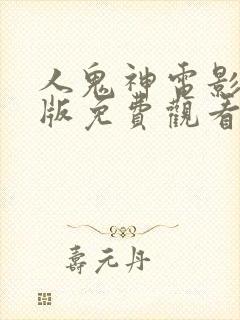 人鬼神電影
版免費觀看
壽元丹